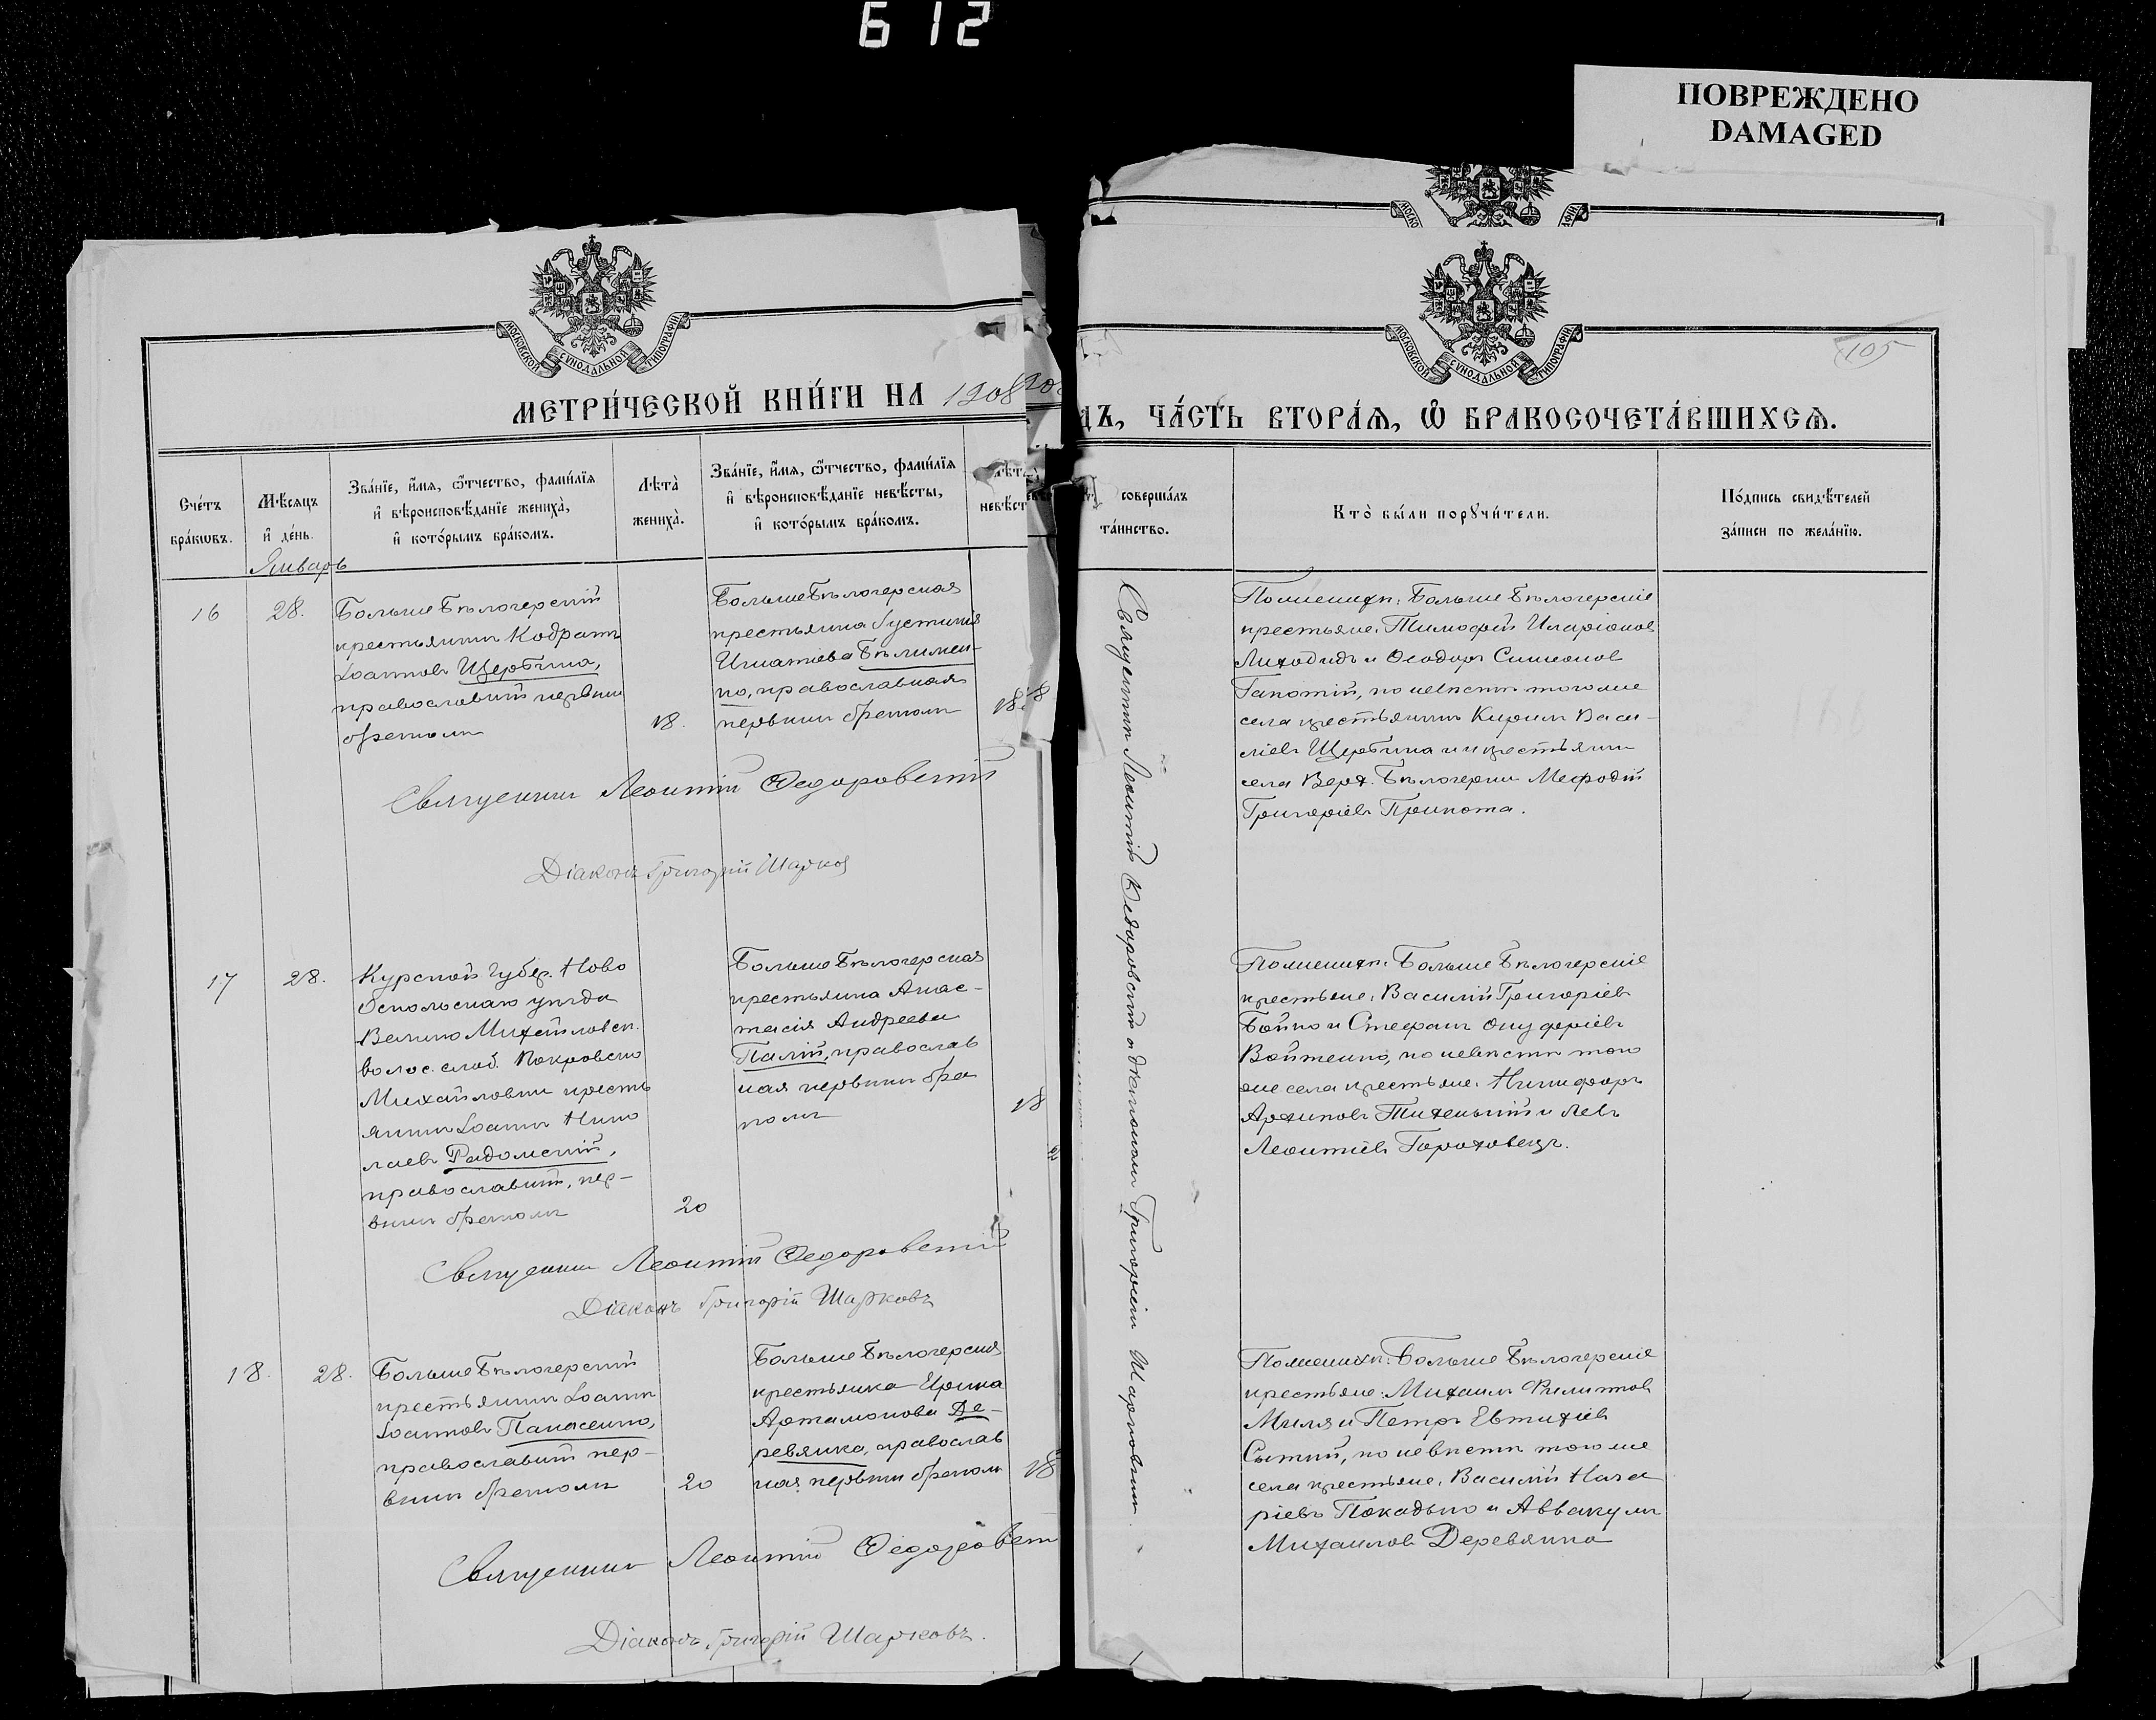 612
ПОВРЕЖДЕНО
DAMAGED
МОСКОВСКОЙ СУНОДАЛЬНОЙ ТИПОГРАФІИ
МОСКОВСКОЙ СУНОДАЛЬНОЙ ТИПОГРАФІИ
105
МЕТРИ́ЧЕСКОЙ КНИ́ГИ НА 1908
ДЪ, ЧА́СТЬ ВТОРА́Ѧ, Ѽ БРАКОСОЧЕТА́ВШИХСѦ.
Сче́тъ
бра́кѡвъ.
Мѣ́сяцъ
и҆ де́нь.
Зва́нїе, и҆́мя, ѻ҆́тчество, фами́лїя
и҆ вѣроисповѣ́данїе жениха̀,
и҆ кото́рымъ бра́комъ.
Лѣта̀
жениха̀.
Зва́нїе, и҆́мя, ѻ҆́тчество, фами́лїя
и҆ вѣроисповѣ́данїе невѣ́сты,
и҆ кото́рымъ бра́комъ.
невѣст
соверша́лъ
та́инство.
Кто̀ бы́ли порꙋчи́тели.
По́дпись свидѣ́телей
за́писи по жела́нїю.
Январь
16
28.
Больше Бѣлозерскій
крестьянинъ Кодратъ
Іоанновъ Щербина,
православный первымъ
бракомъ
18.
Больше Бѣлозерская
крестьянка Іустинія
Игнатіева Бѣлимен-
ко, православная
первымъ бракомъ
18.
Священникъ Леонтій Федоровскій
Діаконъ Григорій Шарков
По женихѣ: Больше Бѣлозерскіе
крестьяне: Тимофей Иларіоновъ
Лиходидъ и Ѳеодоръ Симеоновъ
Гапотій, по невѣстѣ того же
села крестьянинъ Кирилъ Васи-
ліевъ Щербина и крестьянин
села Верх. Бѣлозерки Мефодій
Григоріевъ Прикота.
17
28.
Курской губер. Ново
Оскольскаго уѣзда
Велико Михайловск.
волос. слоб. Покровско
Михайловки кресть
янинъ Іоаннъ Нико
лаевъ Радомскій,
православный, пер-
вымъ бракомъ
20
Больше Бѣлозерская
крестьянка Анас-
тасія Андреева
Палій, православ
ная первымъ бра
комъ
18
Священникъ Леонтій Федоровскій
Діаконъ Григорій Шарковъ
По женихѣ: Больше Бѣлозерскіе
крестьяне: Василій Григоріевъ
Бойко и Стефанъ Онуфріевъ
Войтенко, по невѣстѣ того
же села крестьяне: Никифоръ
Архиповъ Тихенькій и Левъ
Леонтіевъ Гороховецъ.
18.
28.
Больше Бѣлозерскій
крестьянинъ Іоаннъ
Іоанновъ Панасенко,
православный пер-
вымъ бракомъ
20
Больше Бѣлозерская
крестьянка Ирина
Артамонова Де-
ревянко, православ
ная первымъ бракомъ
18
Священникъ Леонтій Федоровск
Діаконъ Григорій Шарковъ.
По женихѣ: Больше Бѣлозерскіе
крестьяне: Михаилъ Филиповъ
Миля и Петръ Евтихіевъ
Сытый, по невѣстѣ того же
села крестьяне: Василій Наза
ріевъ Покадько и Аввакумъ
Михаиловъ Деревянко
Священникъ Леонтій Федоровскій и діакономъ Григоріемъ Шарковымъ.